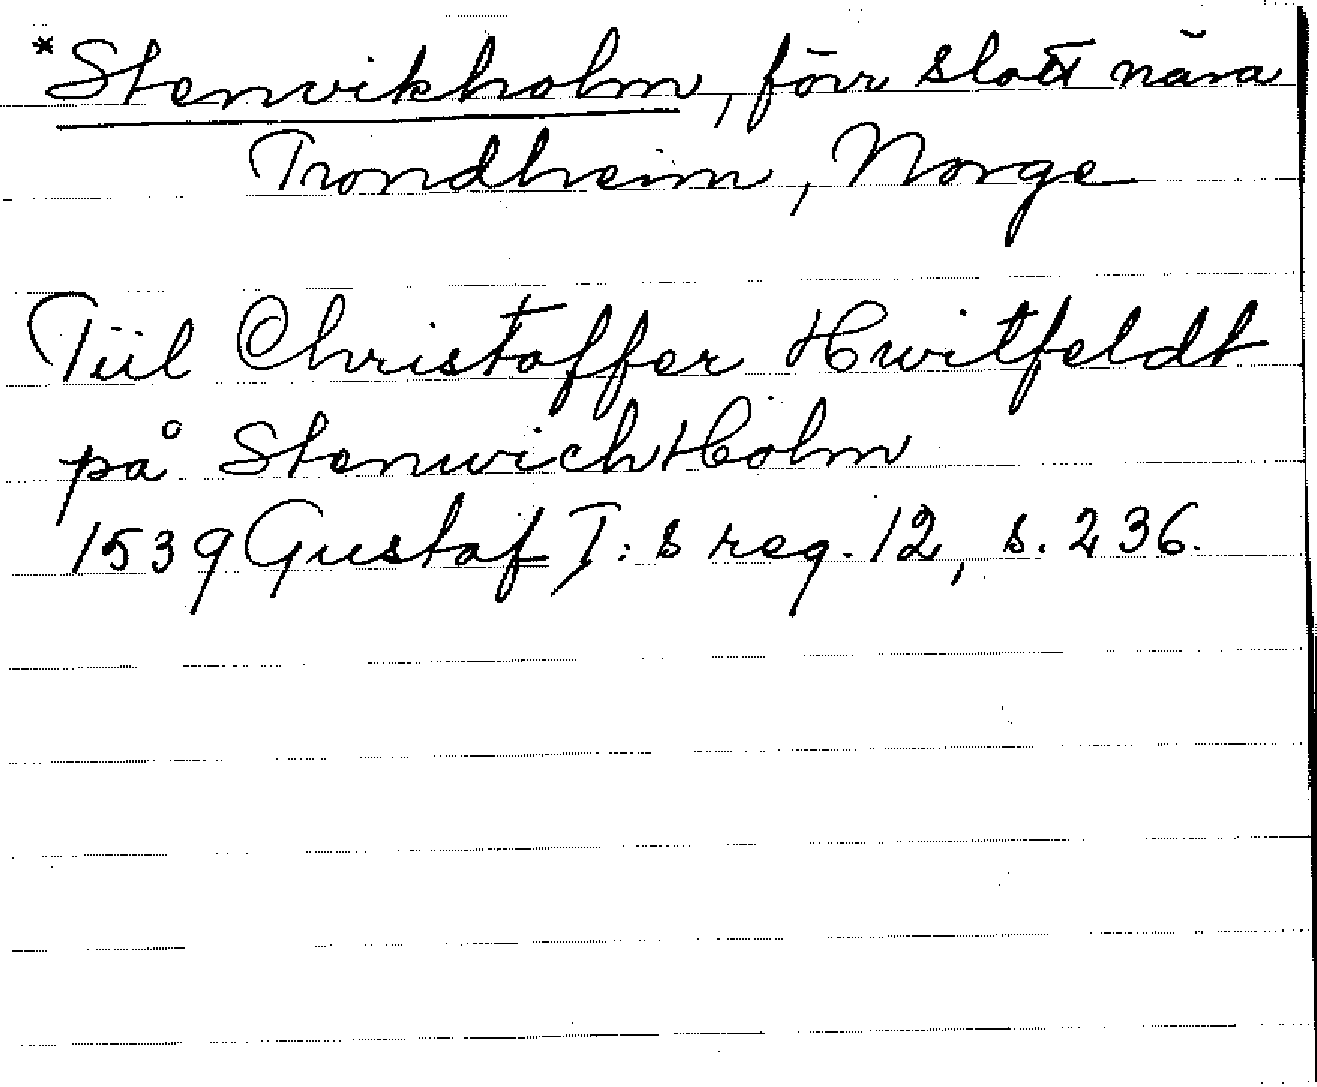 *Stenvikholm, förr slott nära
Trondheim, Norge
Tiil Christoffer Hwitfeldt
på StenwichHolm
1539 Gustaf I:s reg. 12, s. 236.